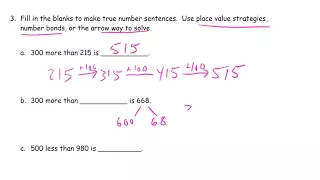 3. Fill in the blanks to make true number sentences. Use place value strategies,
number bonds, or the arrow way to solve.
a. 300 more than 215 is 515.
215 +100→ 315 +100→ 415 +100→ 515
b. 300 more than ____________ is 668.
600 68
c. 500 less than 980 is __________.